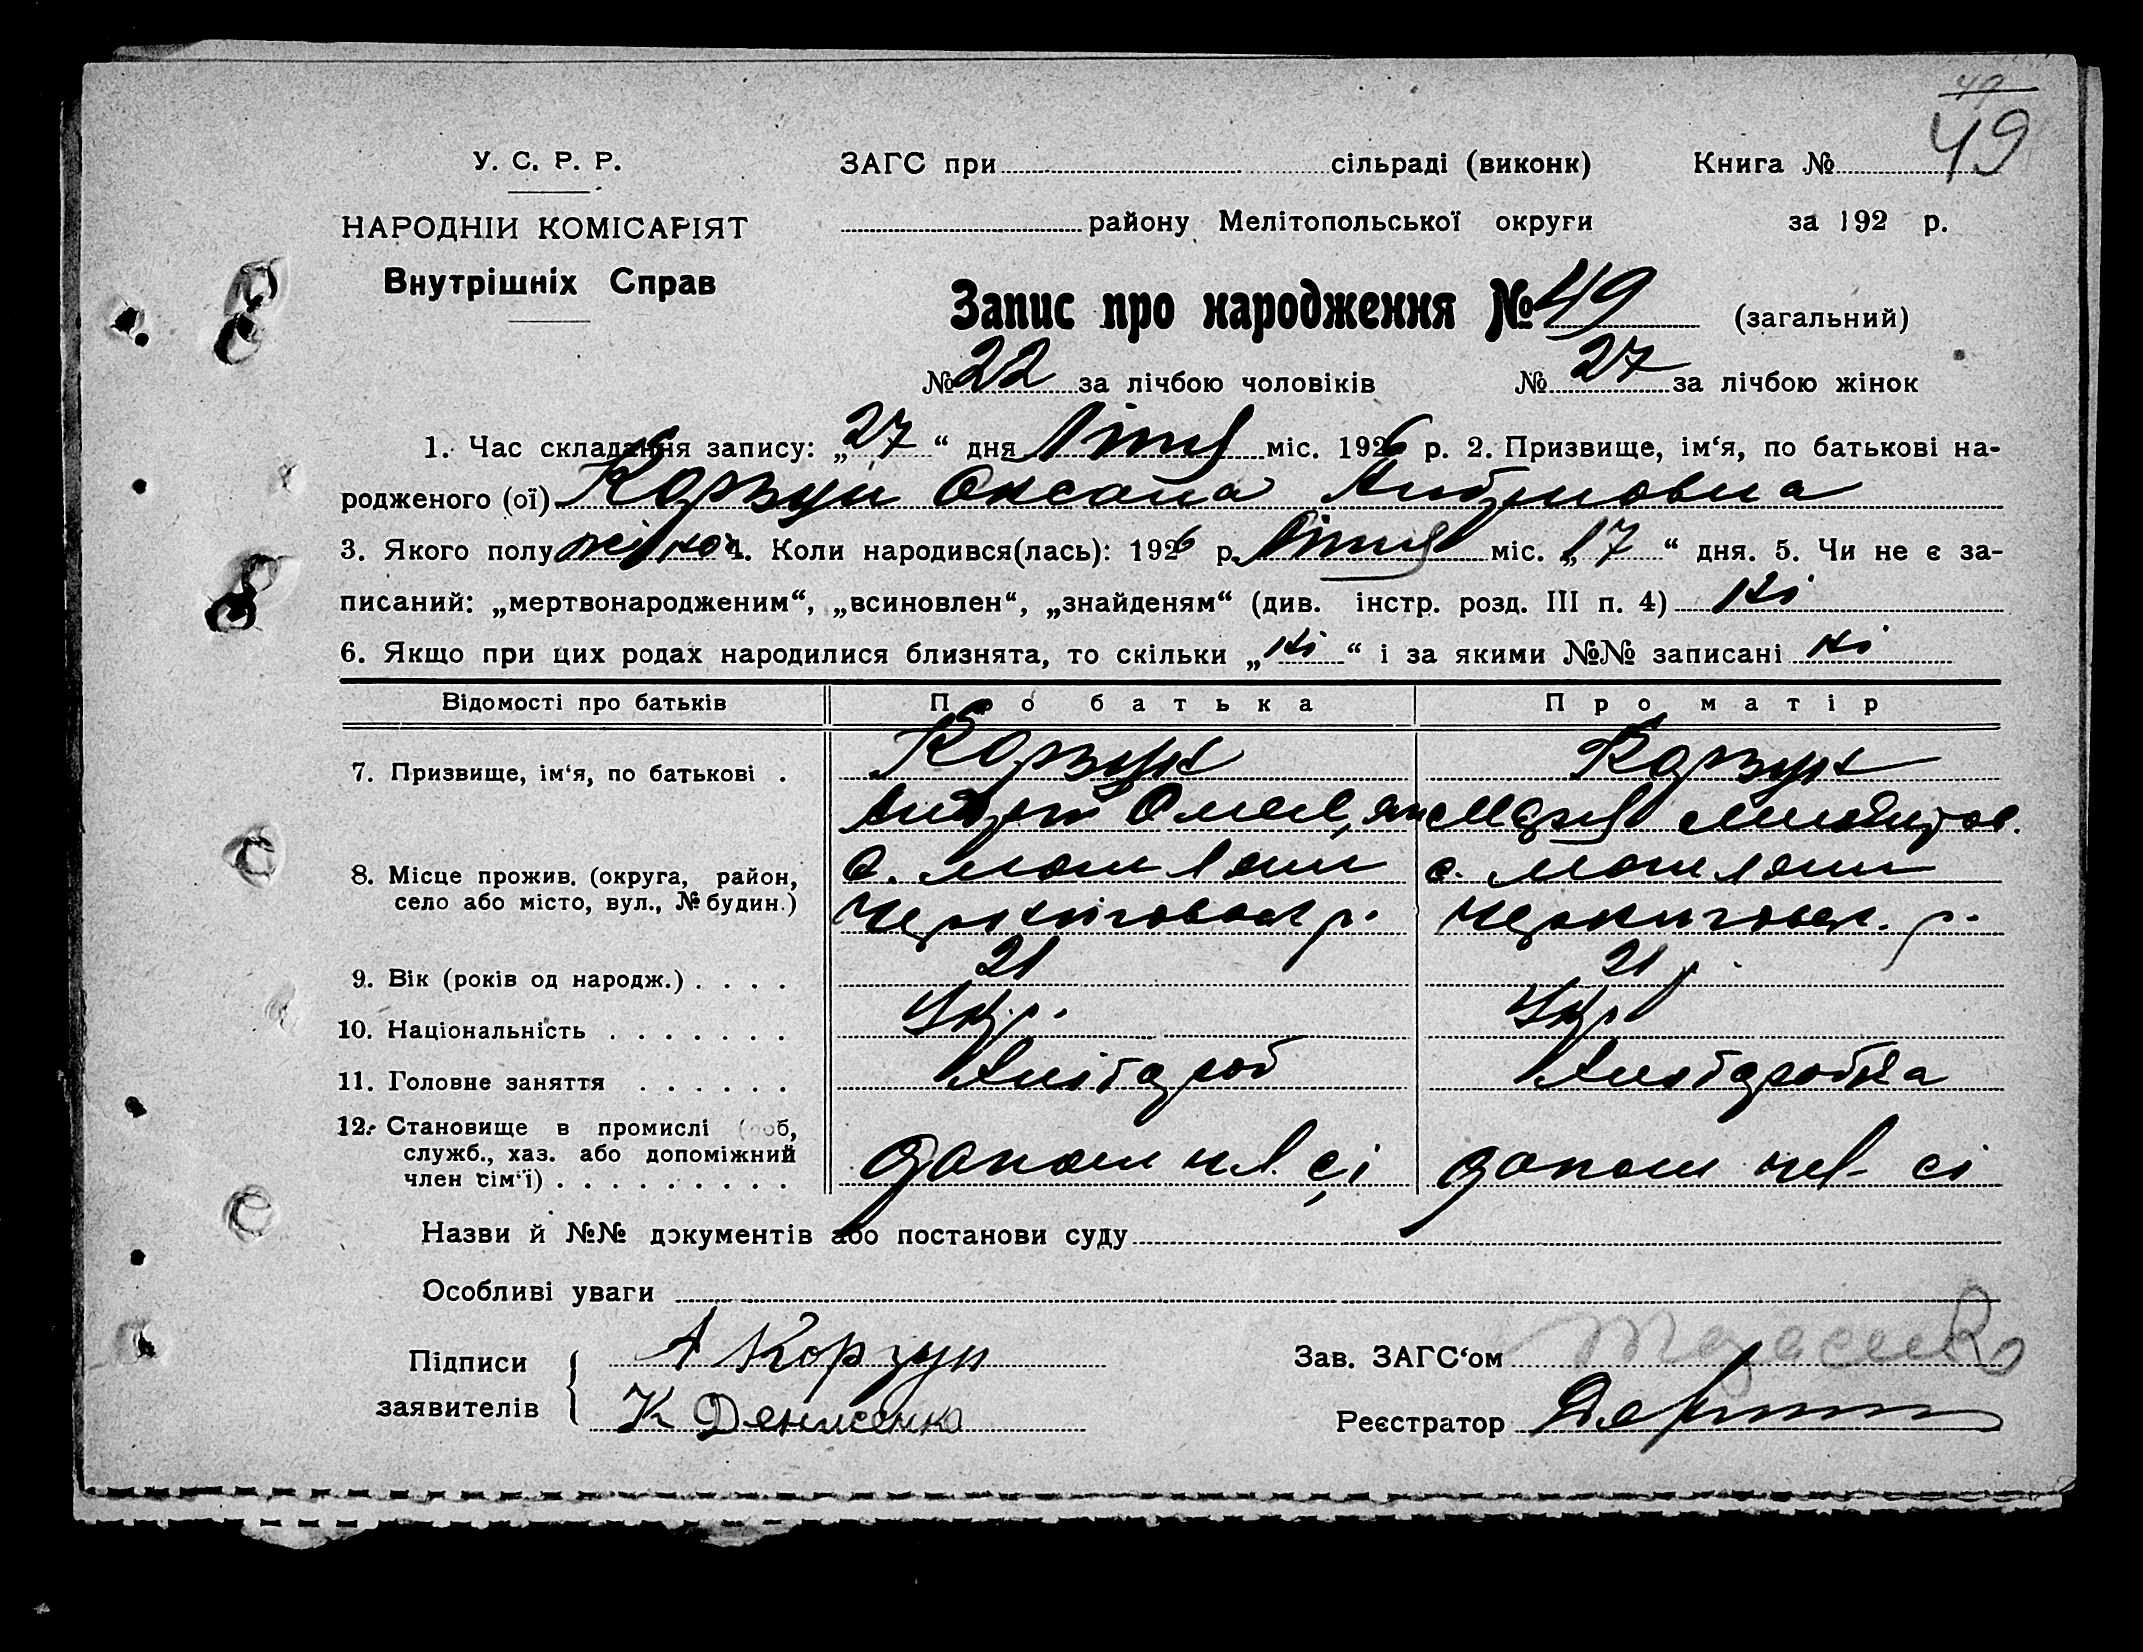 49
49
У. С. Р. Р. ЗАГС при сільраді (виконк) Книга №
НАРОДНІЙ КОМІСАРІЯТ району Мелітопольської округи за 192 р.
Внутрішніх Справ
Запис про народження № 49 (загальний)
№ 22 за лічбою чоловіків № 27 за лічбою жінок
1. Час складання запису: „27“ дня Літня міс. 1926 р. 2. Призвище, ім‘я, по батькові на-
родженого (ої) Корзун Оксана Андріювна
3. Якого полу жіноч 4. Коли народився(лась): 1926 р. Літня міс. „17“ дня. 5. Чи не є за-
писаний: „мертвонародженим“, „всиновлен“, „знайденям“ (див. інстр. розд. III п. 4) Ні
6. Якщо при цих родах народилися близнята, то скільки „Ні“ і за якими №№ записані Ні
Відомості про батьків Про батька Про матір
7. Призвище, ім‘я, по батькові . Корзун Корзун
Андрій Омел,ян Марія
8. Місце прожив. (округа, район, с. с.
село або місто, вул., № будин.) Черниговськ р. Черниговськ. р.
9. Вік (років од народж.) . . . . 21 21 р.
10. Національність . . . . . . . Укр. Укр
11. Головне заняття . . . . . . Хлібороб Хліборобка
12. Становище в промислі ( об,
служб., хаз. або допоміжний допом чл. сі допом чл сі
член сім‘ї) . . . . . . . . .
Назви й №№ документів або постанови суду
Особливі уваги
Підписи А Корзун Зав. ЗАГС‘ом
заявителів К Денисенко Реєстратор